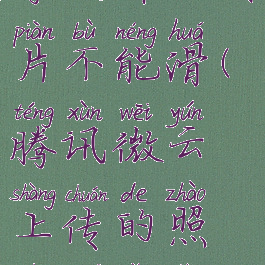 piàn bù néng huá
片不能滑(
téng xùn wēi yún
腾讯微云
shàng chuán de zhào
上传的照